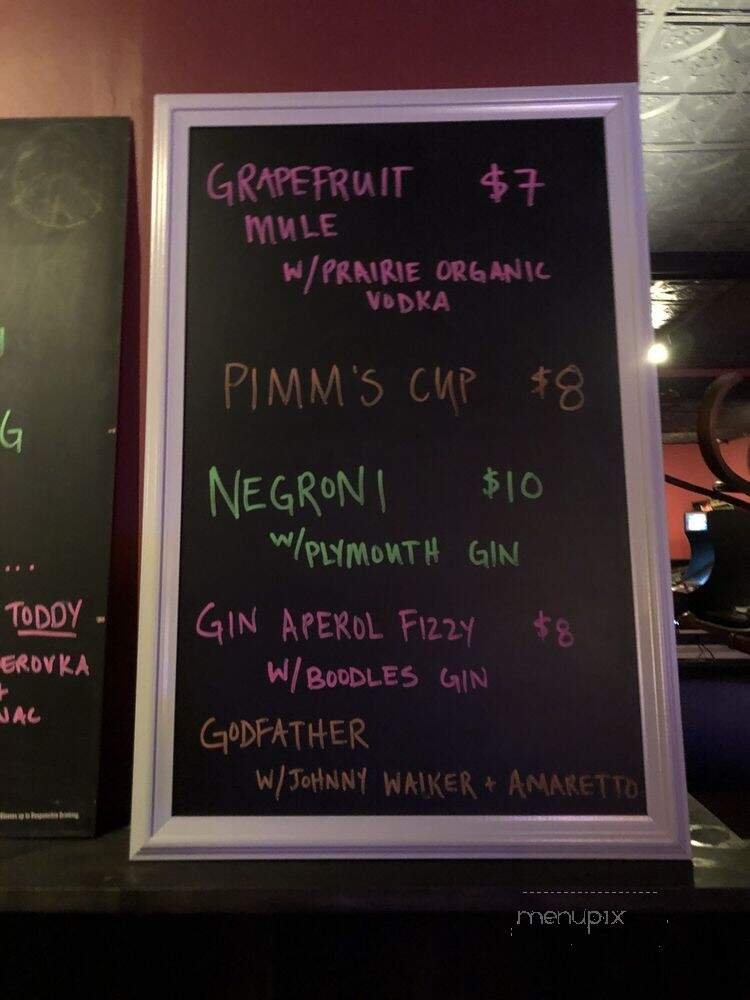 GRAPEFRUIT $7
MULE
W/PRAIRIE ORGANIC
VODKA
PIMM'S CUP $8
NEGRONI $10
W/PLYMOUTH GIN
GIN APEROL FIZZY $8
W/BOODLES GIN
GODFATHER
W/JOHNNY WALKER + AMARETTO
G
...
TODDY
EROVKA
+
NAC
menupix